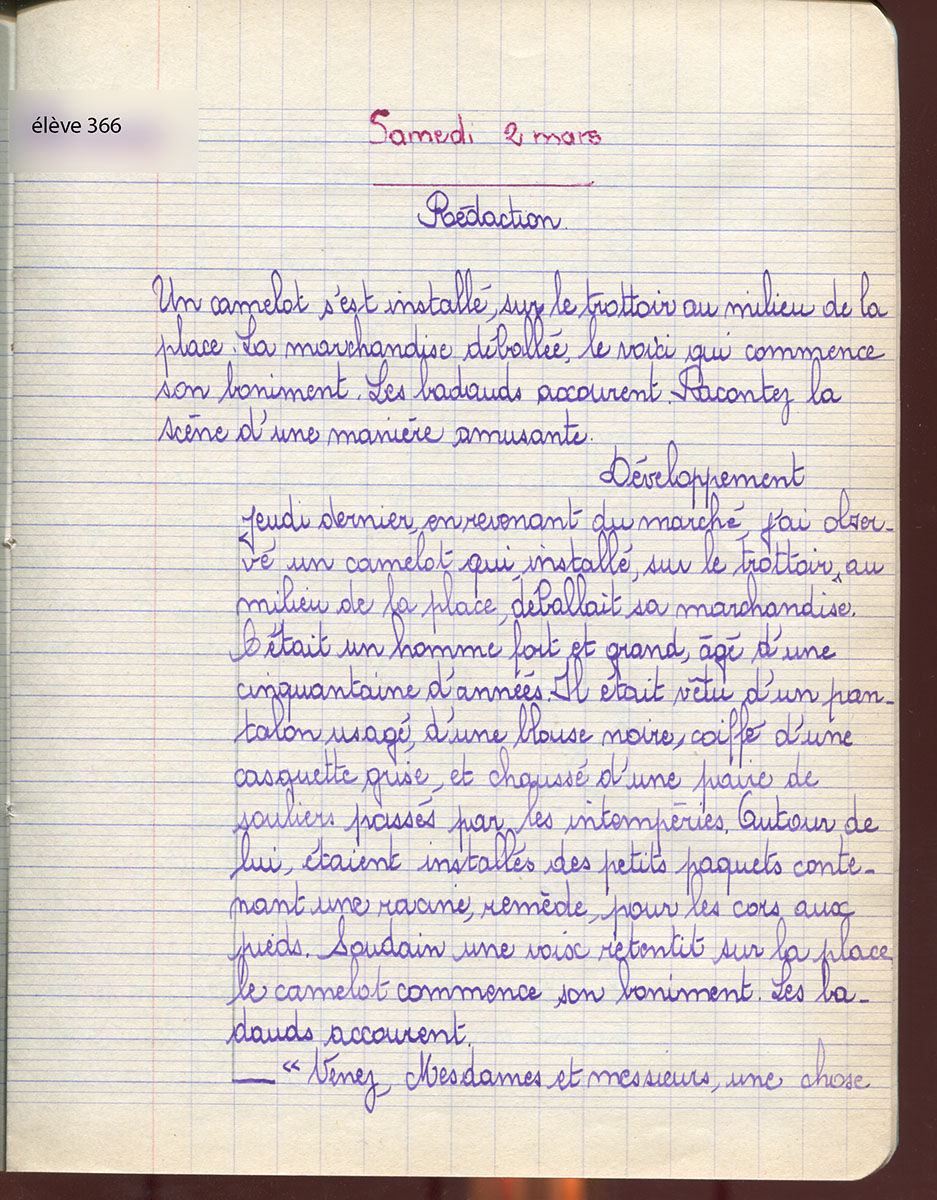 élève 366
Samedi 2 mars
Rédaction.
Un camelot s'est installé, sur le trottoir au milieu de la
place. La marchandise déballée, le voici qui commence
son boniment. Les badauds accourent. Racontez la
scène d'une manière amusante.
Développement
Jeudi dernier, en revenant du marché, j'ai obser-
vé un camelot qui, installé, sur le trottoir, au
milieu de la place, déballait sa marchandise.
C'était un homme fort et grand, âgé d'une
cinquantaine d'années. Il était vêtu d'un pan-
talon usagé, d'une blouse noire, coiffé d'une
casquette grise, et chaussé d'une paire de
souliers passés par les intempéries. Autour de
lui, étaient installés des petits paquets conte-
nant une racine, remède, pour les cors aux
pieds. Soudain une voix retentit sur la place
le camelot commence son boniment. Les ba-
dauds accourent.
— « Venez, Mesdames et messieurs, une chose